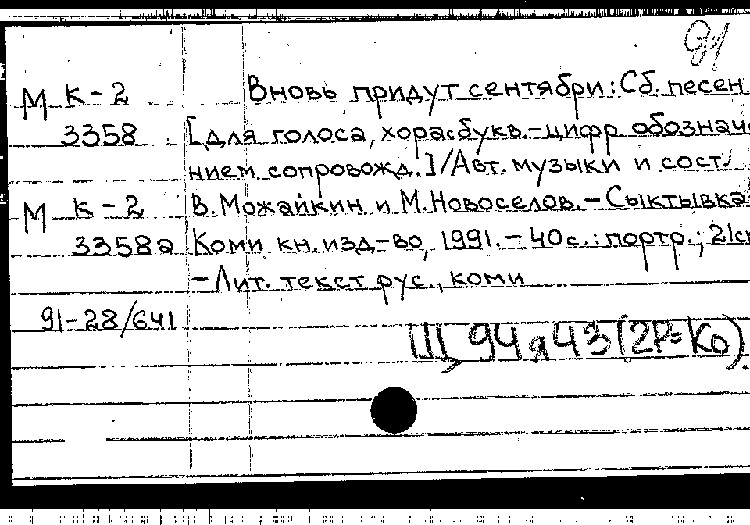 91
М К-2 Вновь придут сентябри: Сб. песен
3358 [для голоса, хора с букв.-цифр обознач
нием сопровожд.]/Авт. музыки и сост.
М К-2 В. Можайкин и М. Новоселов.-Сыктывка
3358а Коми кн. изд-во, 1991.-40с.: портр.; 21с
-Лит. текст рус., коми
91-28/641
Щ 94я43(2Р=Ко).